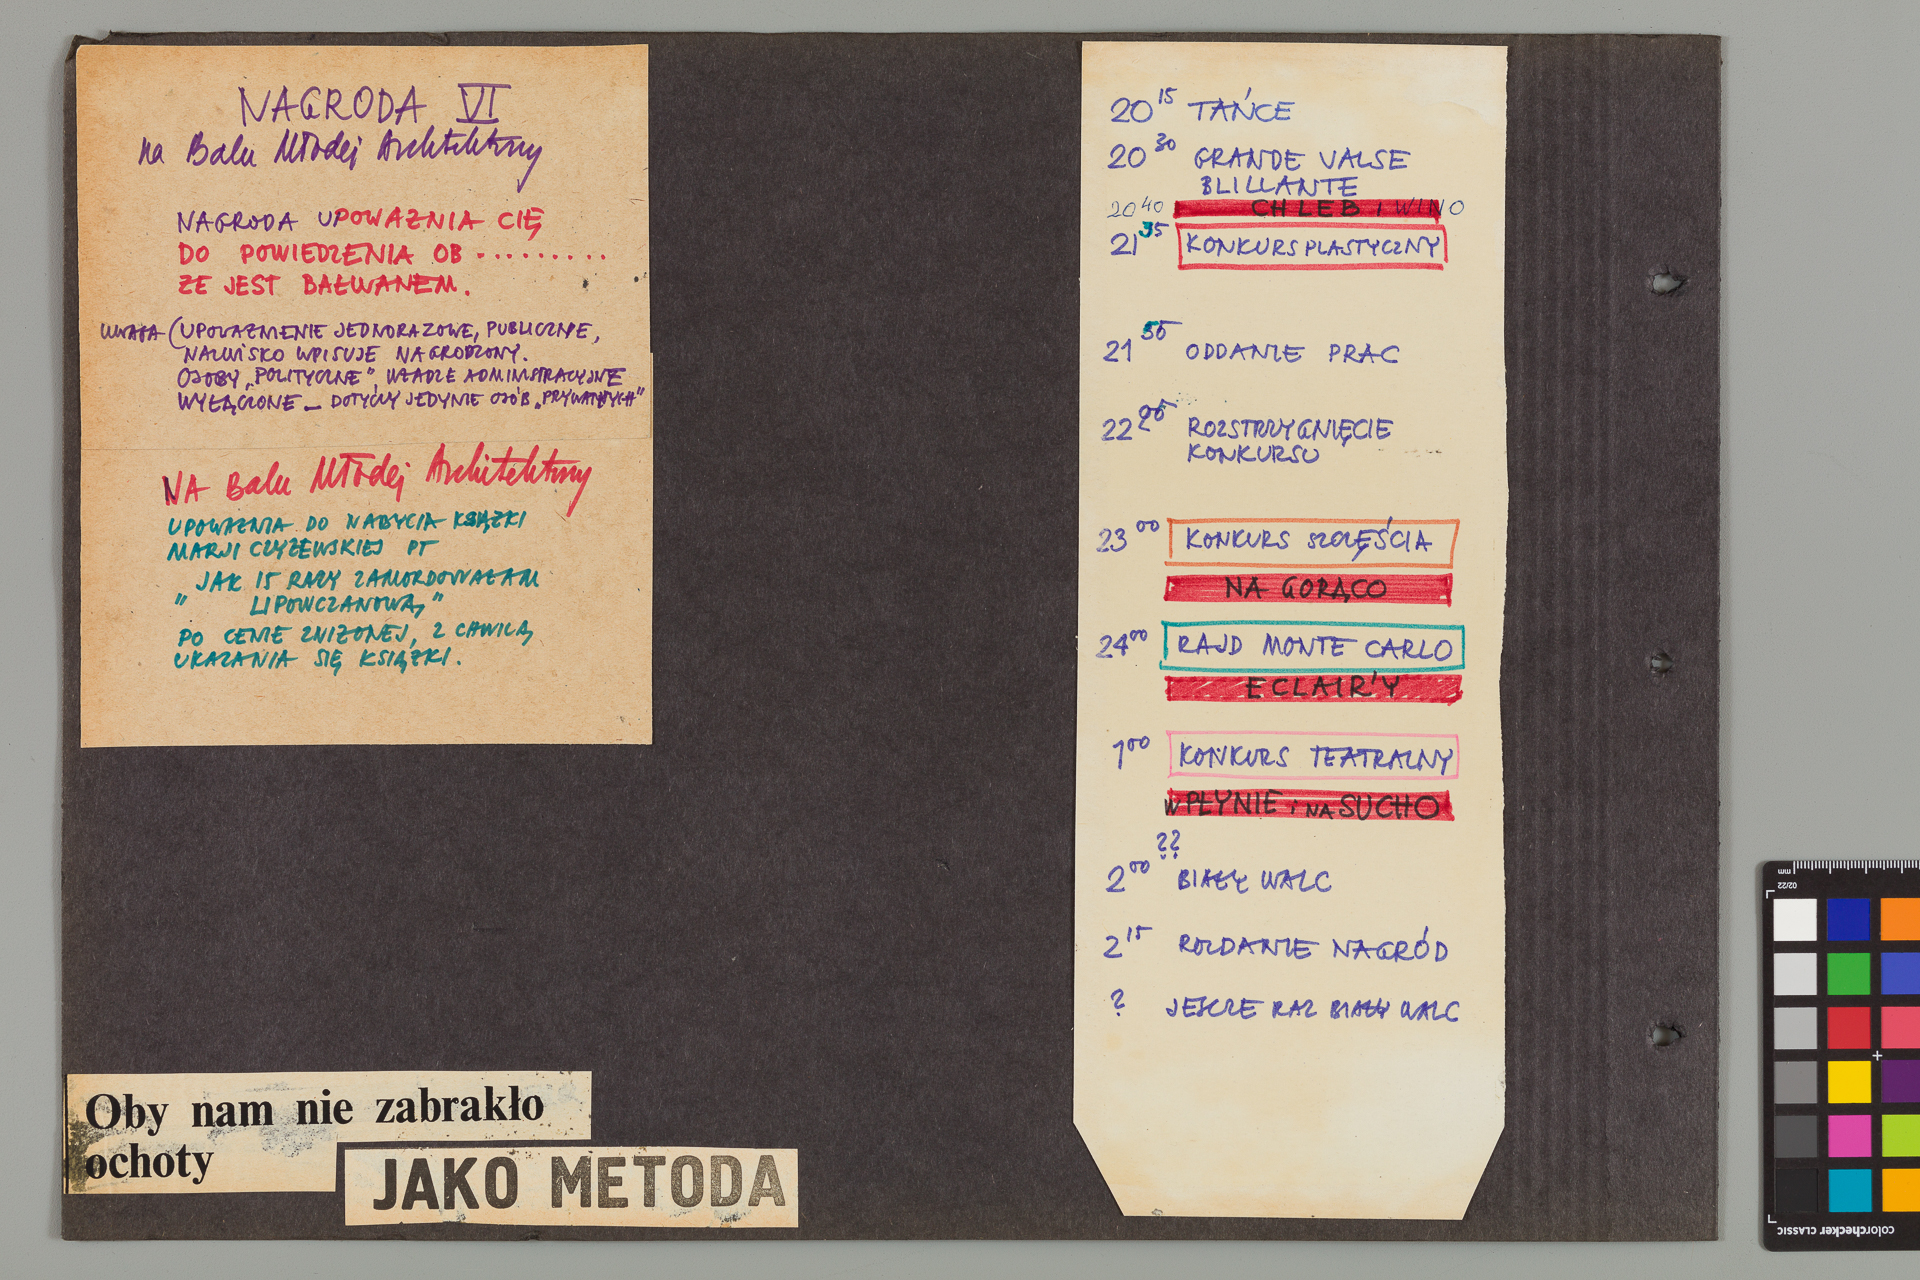 NAGRODA VI
na Balu Młodej Architektury
NAGRODA UPOWAŻNIA CIĘ
DO POWIEDZENIA OB .........
ŻE JEST BAŁWANEM.
UWAGA (UPOWAŻNIENIE JEDNORAZOWE, PUBLICZNE,
NAZWISKO WPISUJE NAGRODZONY.
OSOBY „POLITYCZNE”, WŁADZE ADMINISTRACYJNE
WYŁĄCZONE – DOTYCZY JEDYNIE OSÓB „PRYWATNYCH”
NA Balu Młodej Architektury
UPOWAŻNIA DO NABYCIA KSIĄŻKI
MARJI CZYŻEWSKIEJ PT
„JAK 15 RAZY ZAMORDOWAŁAM
LIPOWCZANOWĄ”
PO CENIE ZNIŻONEJ, Z CHWILĄ
UKAZANIA SIĘ KSIĄŻKI.
Oby nam nie zabrakło
ochoty
JAKO METODA
20 15 TAŃCE
20 30 GRANDE VALSE
BLILLANTE
20 40 CHLEB i WINO
21 35 KONKURS PLASTYCZNY
21 55 ODDANIE PRAC
22 05 ROZSTRZYGNIĘCIE
KONKURSU
23 00 KONKURS SZCZĘŚCIA
NA GORĄCO
24 00 RAJD MONTE CARLO
ECLAIR'Y
1 00 KONKURS TEATRALNY
W PŁYNIE i NA SUCHO
??
2 00 BIAŁY WALC
2 15 ROZDANIE NAGRÓD
? JESZCZE RAZ BIAŁY WALC
mm
02/22
colorchecker CLASSIC